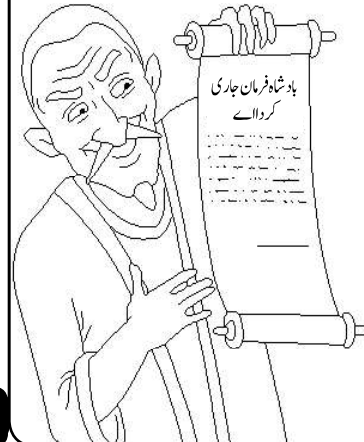 بادشاہ فرمان جاری
کردااے